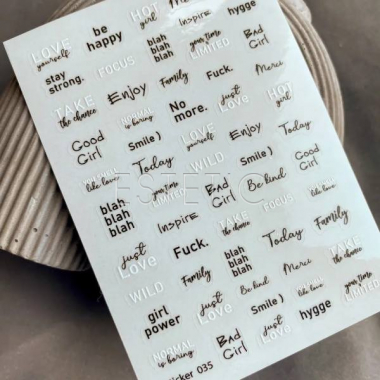 HOT
girl
LOVE
yourself
be
happy
Inspire
hygge
blah
blah
blah
your time
LIMITED
Bad
Girl
stay
strong.
FOCUS
Family
Fuck.
Merci
TAKE
the chance
Enjoy
No
more.
just
Love
HOT
girl
NORMAL
is boring
Good
Girl
Smile )
LOVE
yourself
Enjoy
Today
Today
WILD
Smile )
Good
Girl
like love
your time
LIMITED
Bad
Girl
Be kind
YOU SMELL
like love
blah
blah
blah
Inspire
TAKE
the chance
FOCUS
Family
ESTETIC
just
Love
Fuck.
blah
blah
blah
Today
TAKE
the chance
WILD
Family
Be kind
Merci
like love
your time
LIMITED
girl
power
just
Love
Smile )
hygge
NORMAL
is boring
Bad
Girl
just
Love
icker 035